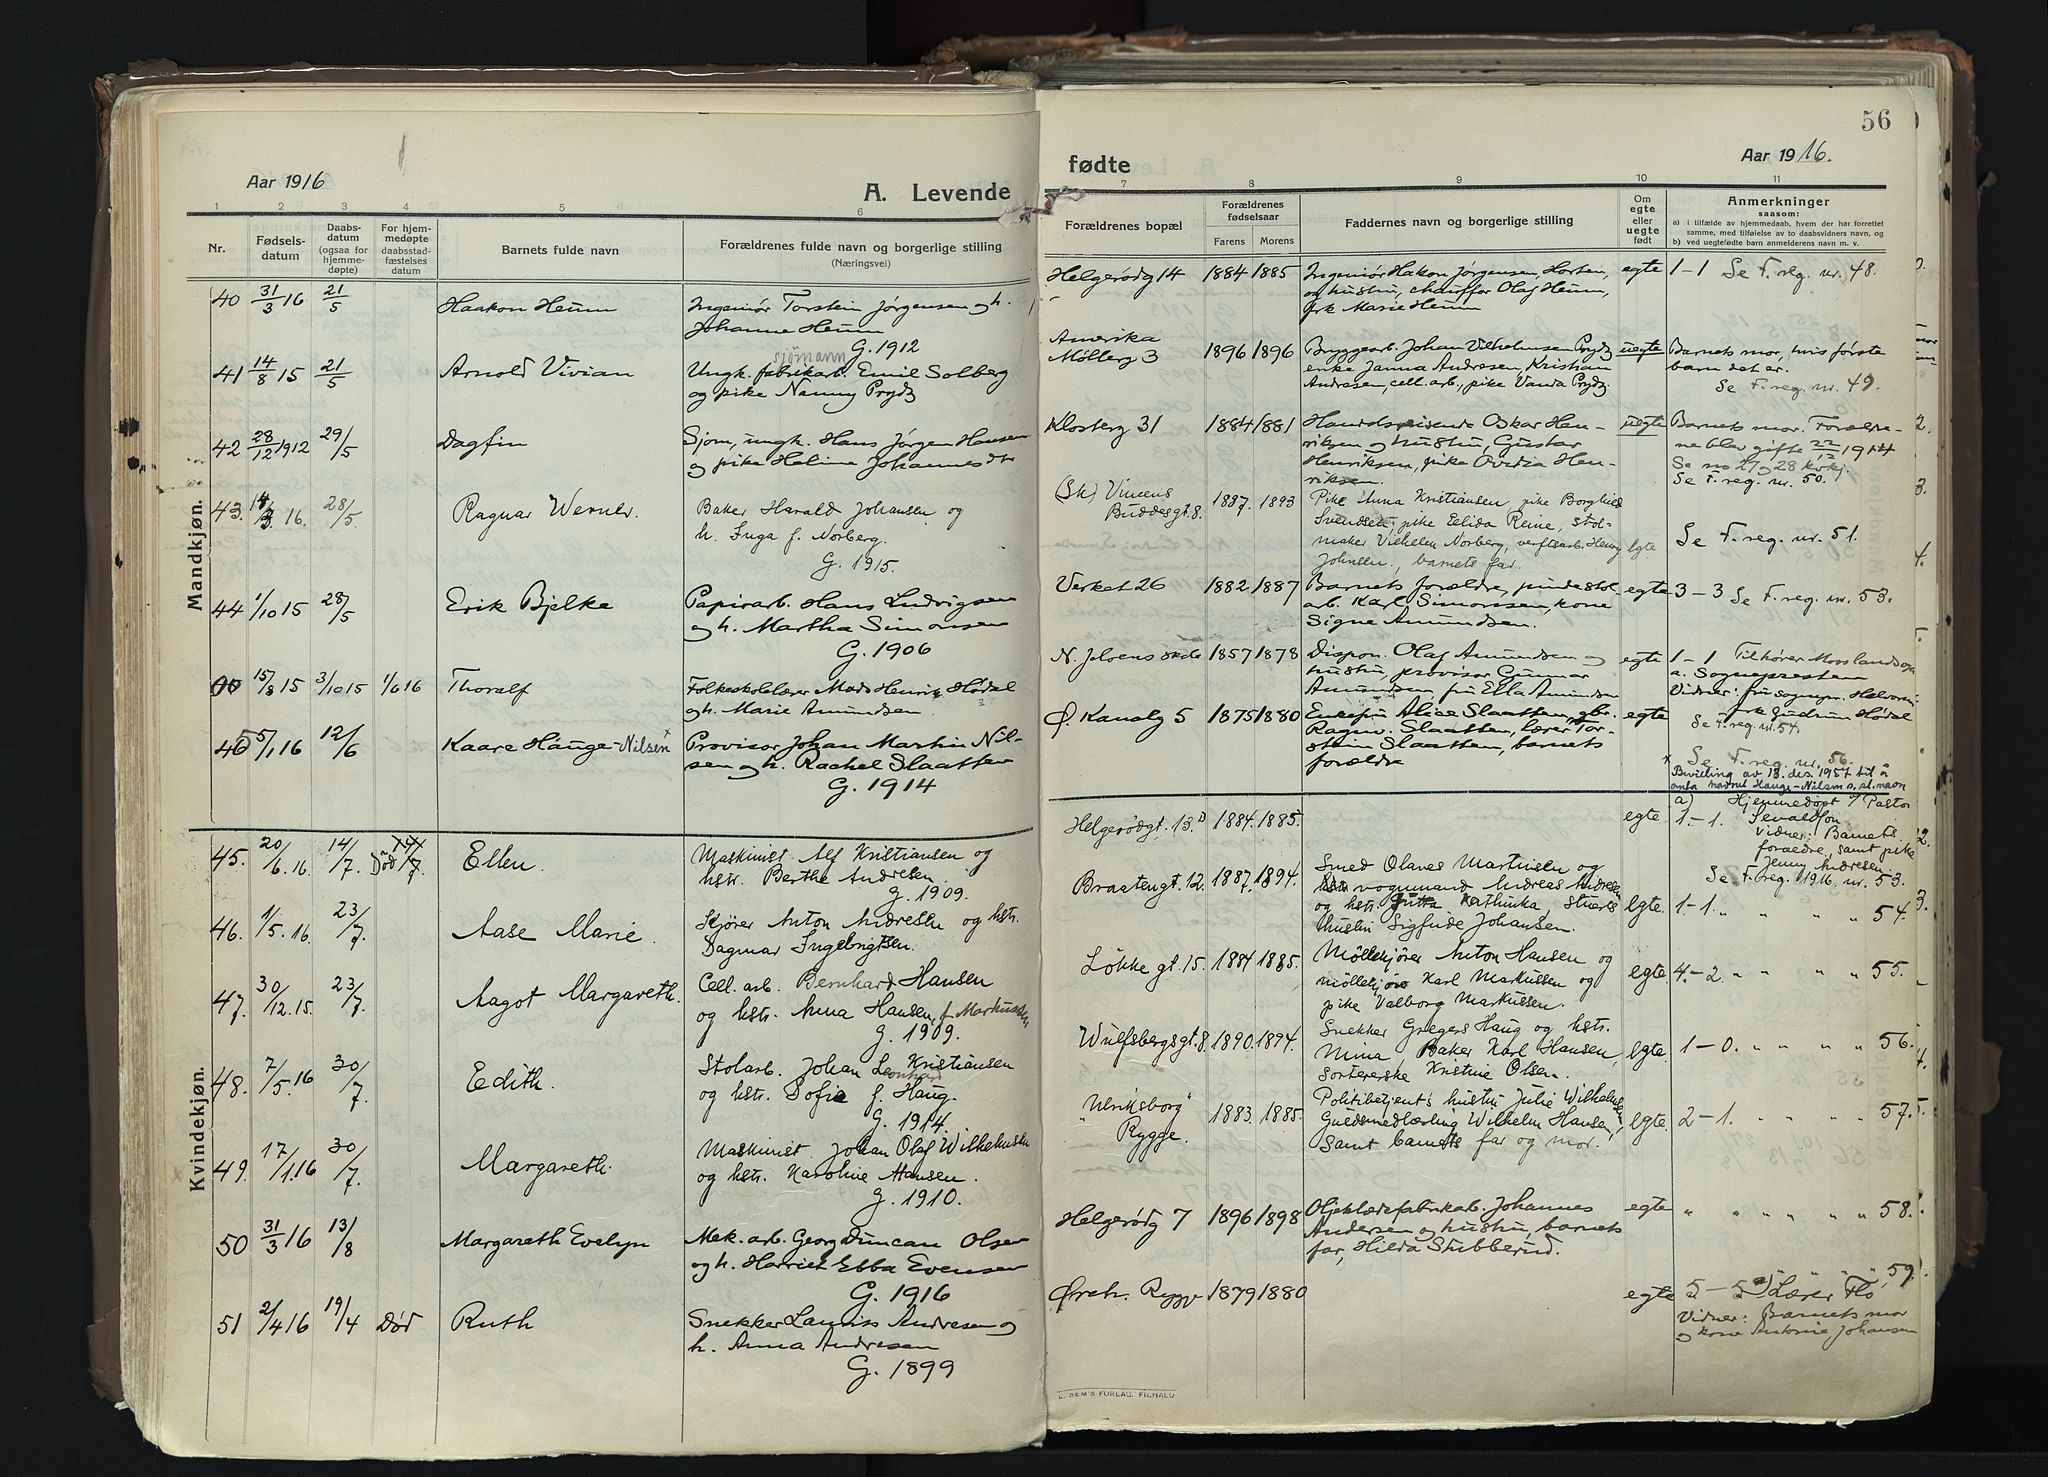 56
Aar 1916
A. Levende
fødte
Aar 1916.
1 2 3 4 5 6
7 8 9 10 11
Nr.
Fødsels-
datum
Daabs-
datum
(ogsaa for
hjemme-
døpte)
For hjem-
medøpte
daabsstad-
fæstelses
datum
Barnets fulde navn
Forældrenes fulde navn og borgerlige stilling
(Næringsvei)
Forældrenes bopæl
Forældrenes
fødselsaar
Farens Morens
Faddernes navn og borgerlige stilling
Om
egte
eller
uegte
født
Anmerkninger
saasom:
a) i tilfælde av hjemmedaab, hvem der har forrettet
samme, med tilføielse av to daabsvidners navn, og
b) ved uegtefødte barn anmelderens navn m. v.
Mandkjøn.
40 31/3 16 21/5 Haakon Heum
Ingeniør Torstein Jørgensen og h.
Johanne Heum
G. 1912
Helgerødg 14 1884 1885
Ingeniør Hakon Jørgensen, Horten,
og hustru, chauffør Olaf Heum,
frk Marie Heum
egte 1-1 Se F. reg. nr. 48.
41 14/8 15 21/5 Arnold Vivian
sjømann
Ungk. fabrikarb. Emil Solberg
og pike Nanny Prydz
Amerika
Møllerg 3 1896 1896
Bryggearb. Johan Vilhelmsen Prydz
enke Janna Andresen, Kristian
Andresen, cell. arb., pike Vanda Prydz.
uegte Barnets mor, hvis første
barn det er.
Se F. reg. nr. 49.
42 28/12 1912 29/5 Dagfin
Sjøm, ungk. Hans Jørgen Hansen
og pike Heline Johannesdtr
Klosterg 31 1884 1881
Handelsreisende Oskar Hen-
riksen og hustru, Gustav
Henriksen, pike Ovidia Hen-
riksen.
uegte Barnets mor. Foræld-
ne blev gifte 22/12 1914
Se no 27 og 28 kvkj.
Se F. reg. nr. 50.
43. 14/3 16. 28/5. Ragnar Werner.
Baker Harald Johansen og
h. Inga f. Norberg.
G. 1915.
(Sk) Vincens
Buddesgt. 8. 1887. 1893
Pike Anna Kristiansen, pike Borghild
Svendsen, pike Elida Reine, stol-
maker Vilhelm Norberg, verftsarb. Henry
Johnsen, barnets far.
egte Se F. reg. nr. 51.
44 1/10 15 28/5 Erik Bjelke
Papirarb. Hans Ludvigsen
og h. Martha Simonsen
G. 1906
Verket 26 1882 1887
Barnets forældre, pindestol
arb. Karl Simonsen, kone
Signe Amundsen.
egte 3-3 Se F. reg. nr. 53.
00 15/8 15 3/10 15 1/6 16 Thoralf
Folkeskolelærer Mads Henrik Hødal
og h. Marie Amundsen
N. Jeløens skole 1857 1878
Dispon. Olaf Amundsen og
hustru, provisor Gunnar
Amundsen, fru Ella Amundsen
egte 1-1 Tilhører Moss landsogn
a. Sognepresten
Vidner: fru sognepr.
frk Gudrun Hødal
Se F. reg. nr. 54.
45 5/1 16 12/6 Kaare Hauge-Nilsen x
Provisor Johan Martin Nil-
sen og h. Rachel Slaatten
G. 1914
Ø. Kanalg 5 1875 1880
Enkefru Alice Slaatten, gbr.
Ragnv. Slaatten, lærer Tor-
stein Slaatten, barnets
forældre
egte
Se F. reg. nr. 56.
x Bevilling av 13. des. 1957 til å
anta navnet Hauge-Nilsen s. sl. navn
Kvindekjøn.
45. 20/6. 16. 14/7. Død 14/7. Ellen.
Maskinist Alf Kristiansen og
hstr. Berthe Andresen.
G. 1909.
Helgerødgt. 13. 1884. 1885.
egte 1.-1. a) Hjemmedøpt v/ Pastor
Sevaldson.
Vidner: Barnets
forældre, samt pike
Jenny Andresen
Se F. reg. 1916. nr. 53.
46. 1/5. 16. 23/7. Aase Marie.
Kjører Anton Andresen og hstr.
Dagmar Ingebrigtsen.
Braatengt. 12. 1887. 1894.
Smed Olaves Martinsen og
hstr vognmand Andreas Andresen
og hstr. Jutta Kathinka, stuerts
hustru Sigfride Johansen.
egte. 1-1. " " " " 54.
47. 30/12. 15. 23/7. Aagot Margareth.
Cell. arb. Bernhard Hansen
og hstr. Anna Hansen f. Markussen
G. 1909.
Løkkegt. 15. 1884 1885.
Møllekjører Anton Hansen og
møllekjører Karl Markussen og
pike Valborg Markussen.
egte. 4.-2. " " " " 55.
48. 7/5. 16 30/7. Edith.
Stolarb. Johan Leonhard Kristiansen
og hstr. Sofie f. Haug.
G. 1914.
Wulfsbergsgt. 8. 1890. 1894.
Snekker Gregers Haug og hstr.
Mina Baker Karl Hansen,
Sorterерske Kristine Olsen.
egte. 1-0. " " " " 56.
49. 17/1. 16 30/7. Margareth.
Maskinist Johan Olaf Wilhelmsen
og hstr. Karoline Hansen.
G. 1910.
"Ulriksborg"
Rygge. 1883. 1885.
Politibetjent's hustru Julie Wilhelmsen
Guldsmedlærling Wilhelm Hansen,
samt barnets far og mor.
egte. 2-1. " " " " 57.
50 31/3 16 13/8 Margareth Evelyn
Mek. arb. Georg Duncan Olsen
og h. Harriet Ebba Evensen
G. 1916
Helgerødg 7 1896 1898
Oljeklædefabrikarb. Johannes
Andersen og hustru, barnets
far, Hilda Stubberud.
egte " " " " " 58.
51 2/4 16 19/4 Død Ruth
Snekker Laurits Andresen og
h. Anna Andresen
G. 1899
Ørehv. Rygge 1879 1880
egte 5-5 a) Lærer Flo, " " 59.
Vidner: Barnets mor
og kone Antonie Johansen
E. SEM'S FORLAG, FR.HALD